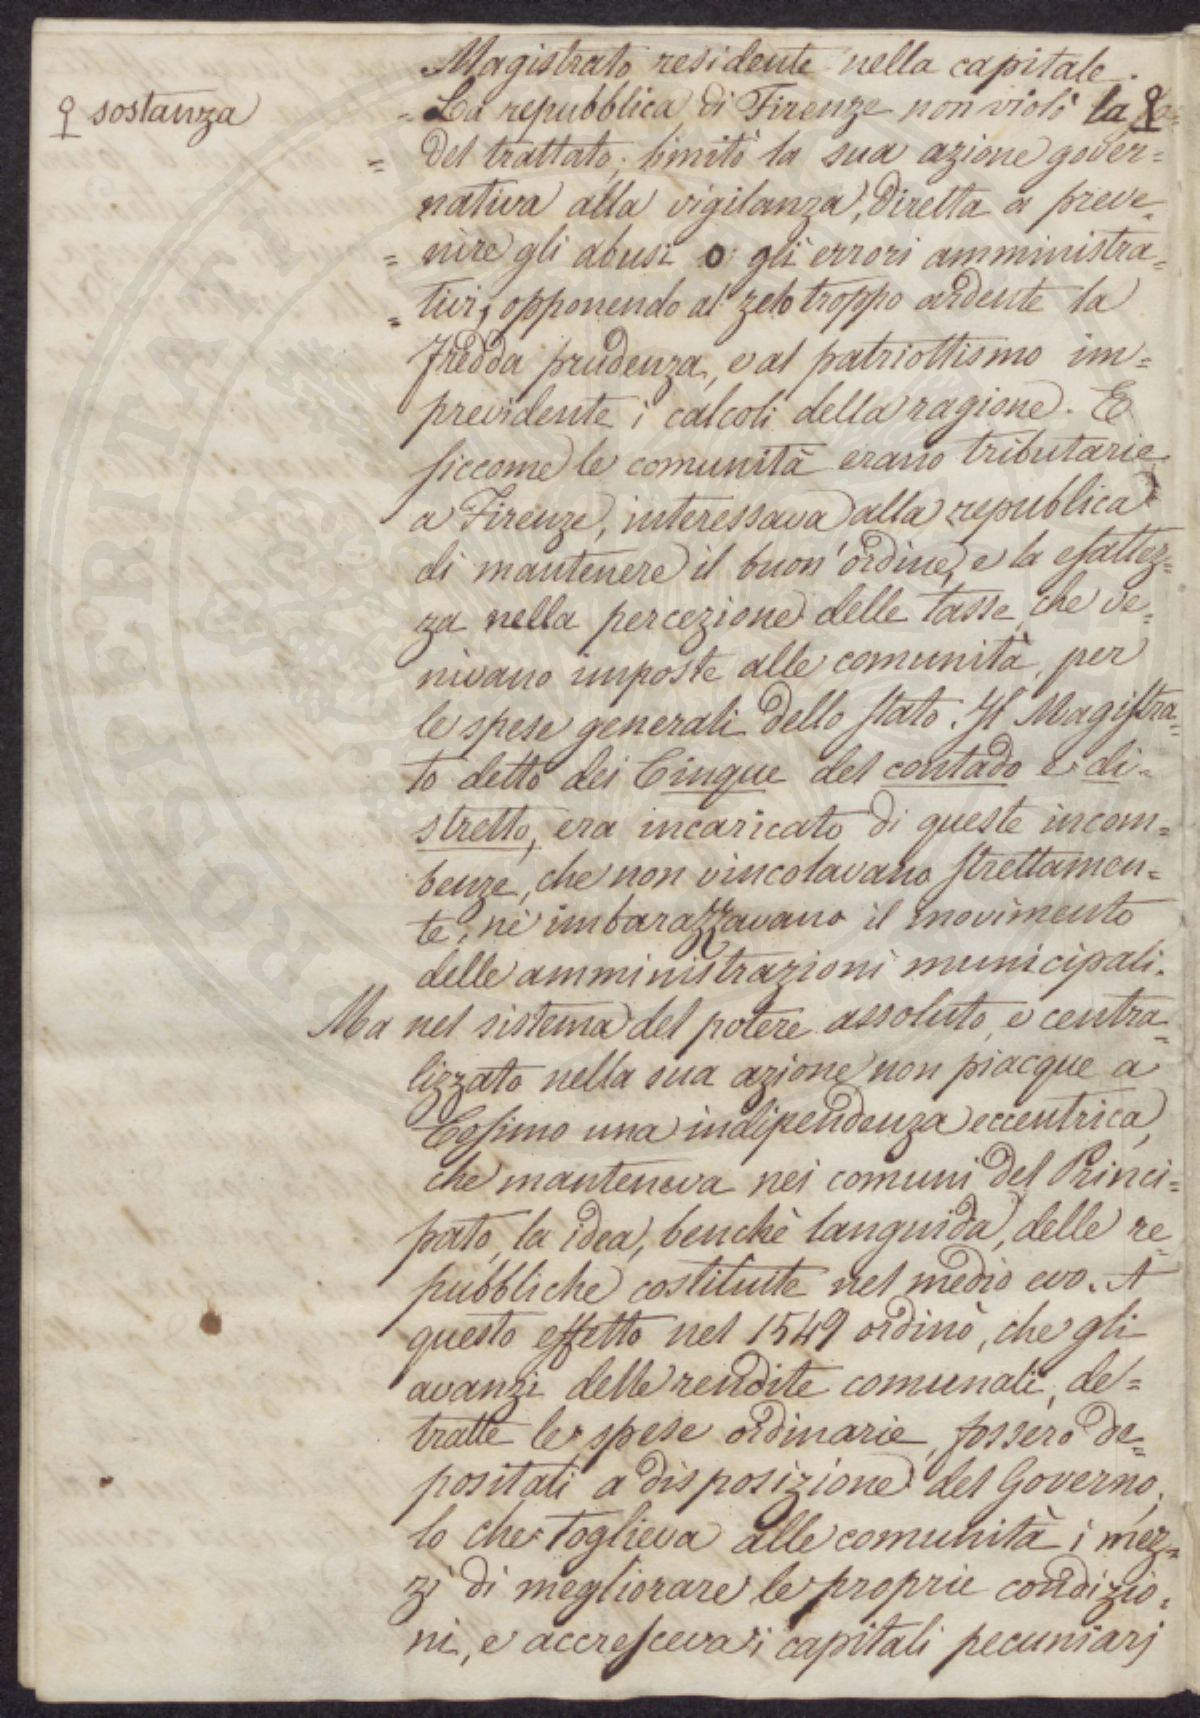 Magistrato residente nella capitale.
♀ sostanza
= La repubblica di Firenze non violò la ♀
= del trattato; limitò la sua azione gover=
nativa alla vigilanza, diretta a preve=
= nire gli abusi o gli errori amministra=
= tivi, opponendo al zelo troppo ardente la
fredda prudenza, e al patriottismo im=
previdente i calcoli della ragione. E
siccome le comunità erano tributarie
a Firenze, interessava alla republica
di mantenere il buon'ordine, e la esattez=
za nella percezione delle tasse, che ve=
nivano imposte alle comunità, per
le spese generali dello stato. Il Magistra=
to detto dei Cinque del contado e di=
stretto, era incaricato di queste incom=
benze, che non vincolavano strettamen=
te, nè imbarazzavano il movimento
delle amministrazioni municipali.
Ma nel sistema del potere assoluto, e centra=
lizzato nella sua azione non piacque a
Cosimo una indipendenza eccentrica,
che manteneva nei comuni del Princi=
pato, la idea, benchè languida, delle re=
pubbliche costituite nel medio evo. A
questo effetto nel 1549 ordinò, che gli
avanzi delle rendite comunali, de=
tratte le spese ordinarie, fossero de=
positati a disposizione del Governo,
lo che toglieva alle comunità i mez=
zi di megliorare le proprie condizio=
ni, e accresceva i capitali pecuniarj
ROSPERITATI